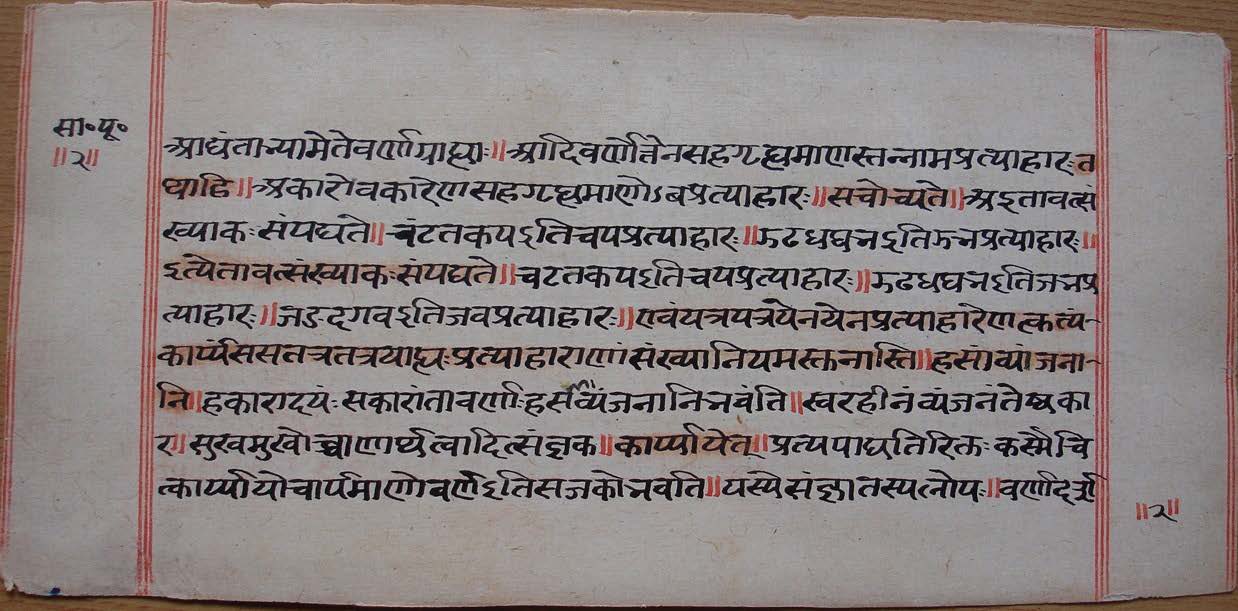 सा॰पू॰
॥२॥
आद्यंताभ्यामेतेवर्णाग्राह्याः॥आदिवर्णोंतेनसहगृह्यमाणस्तन्नामप्रत्याहारःत
थाहि॥अकारोवकारेणसहगृह्यमाणोऽबप्रत्याहारः॥सचोच्यते॥अइतावत्सं
ख्याकःसंपद्यते॥चंटतकपइतिचपप्रत्याहारः॥झढधघभइतिझभप्रत्याहारः॥
इत्येतावत्संख्याकःसंपद्यते॥चटतकपइतिचपप्रत्याहारः॥झढधघभइतिजभप्र
त्याहारः॥जडदगवइतिजवप्रत्याहारः॥एवंयत्रयत्रयेनयेनप्रत्याहारेणत्कत्यं
कार्य्यंससतत्रतत्रग्राह्यःप्रत्याहाराणांसंख्यानियमस्तनास्ति॥हसांव्यांजना
नि॥हकारादयःसकारांतावर्णाःहसाव्यंजनानिभवंति॥स्वरहीनंव्यंजनंतेष्वका
र॥सुखमुखोच्चाणार्थत्वादित्संज्ञक॥कार्य्यायेत्॥प्रत्ययाद्यतिरिक्तःकस्मैचि
त्कार्य्यायोचार्यमाणोवर्णइतिसजकोभवति॥यस्येसंज्ञातस्यलोपः॥वर्णादर्श
॥२॥